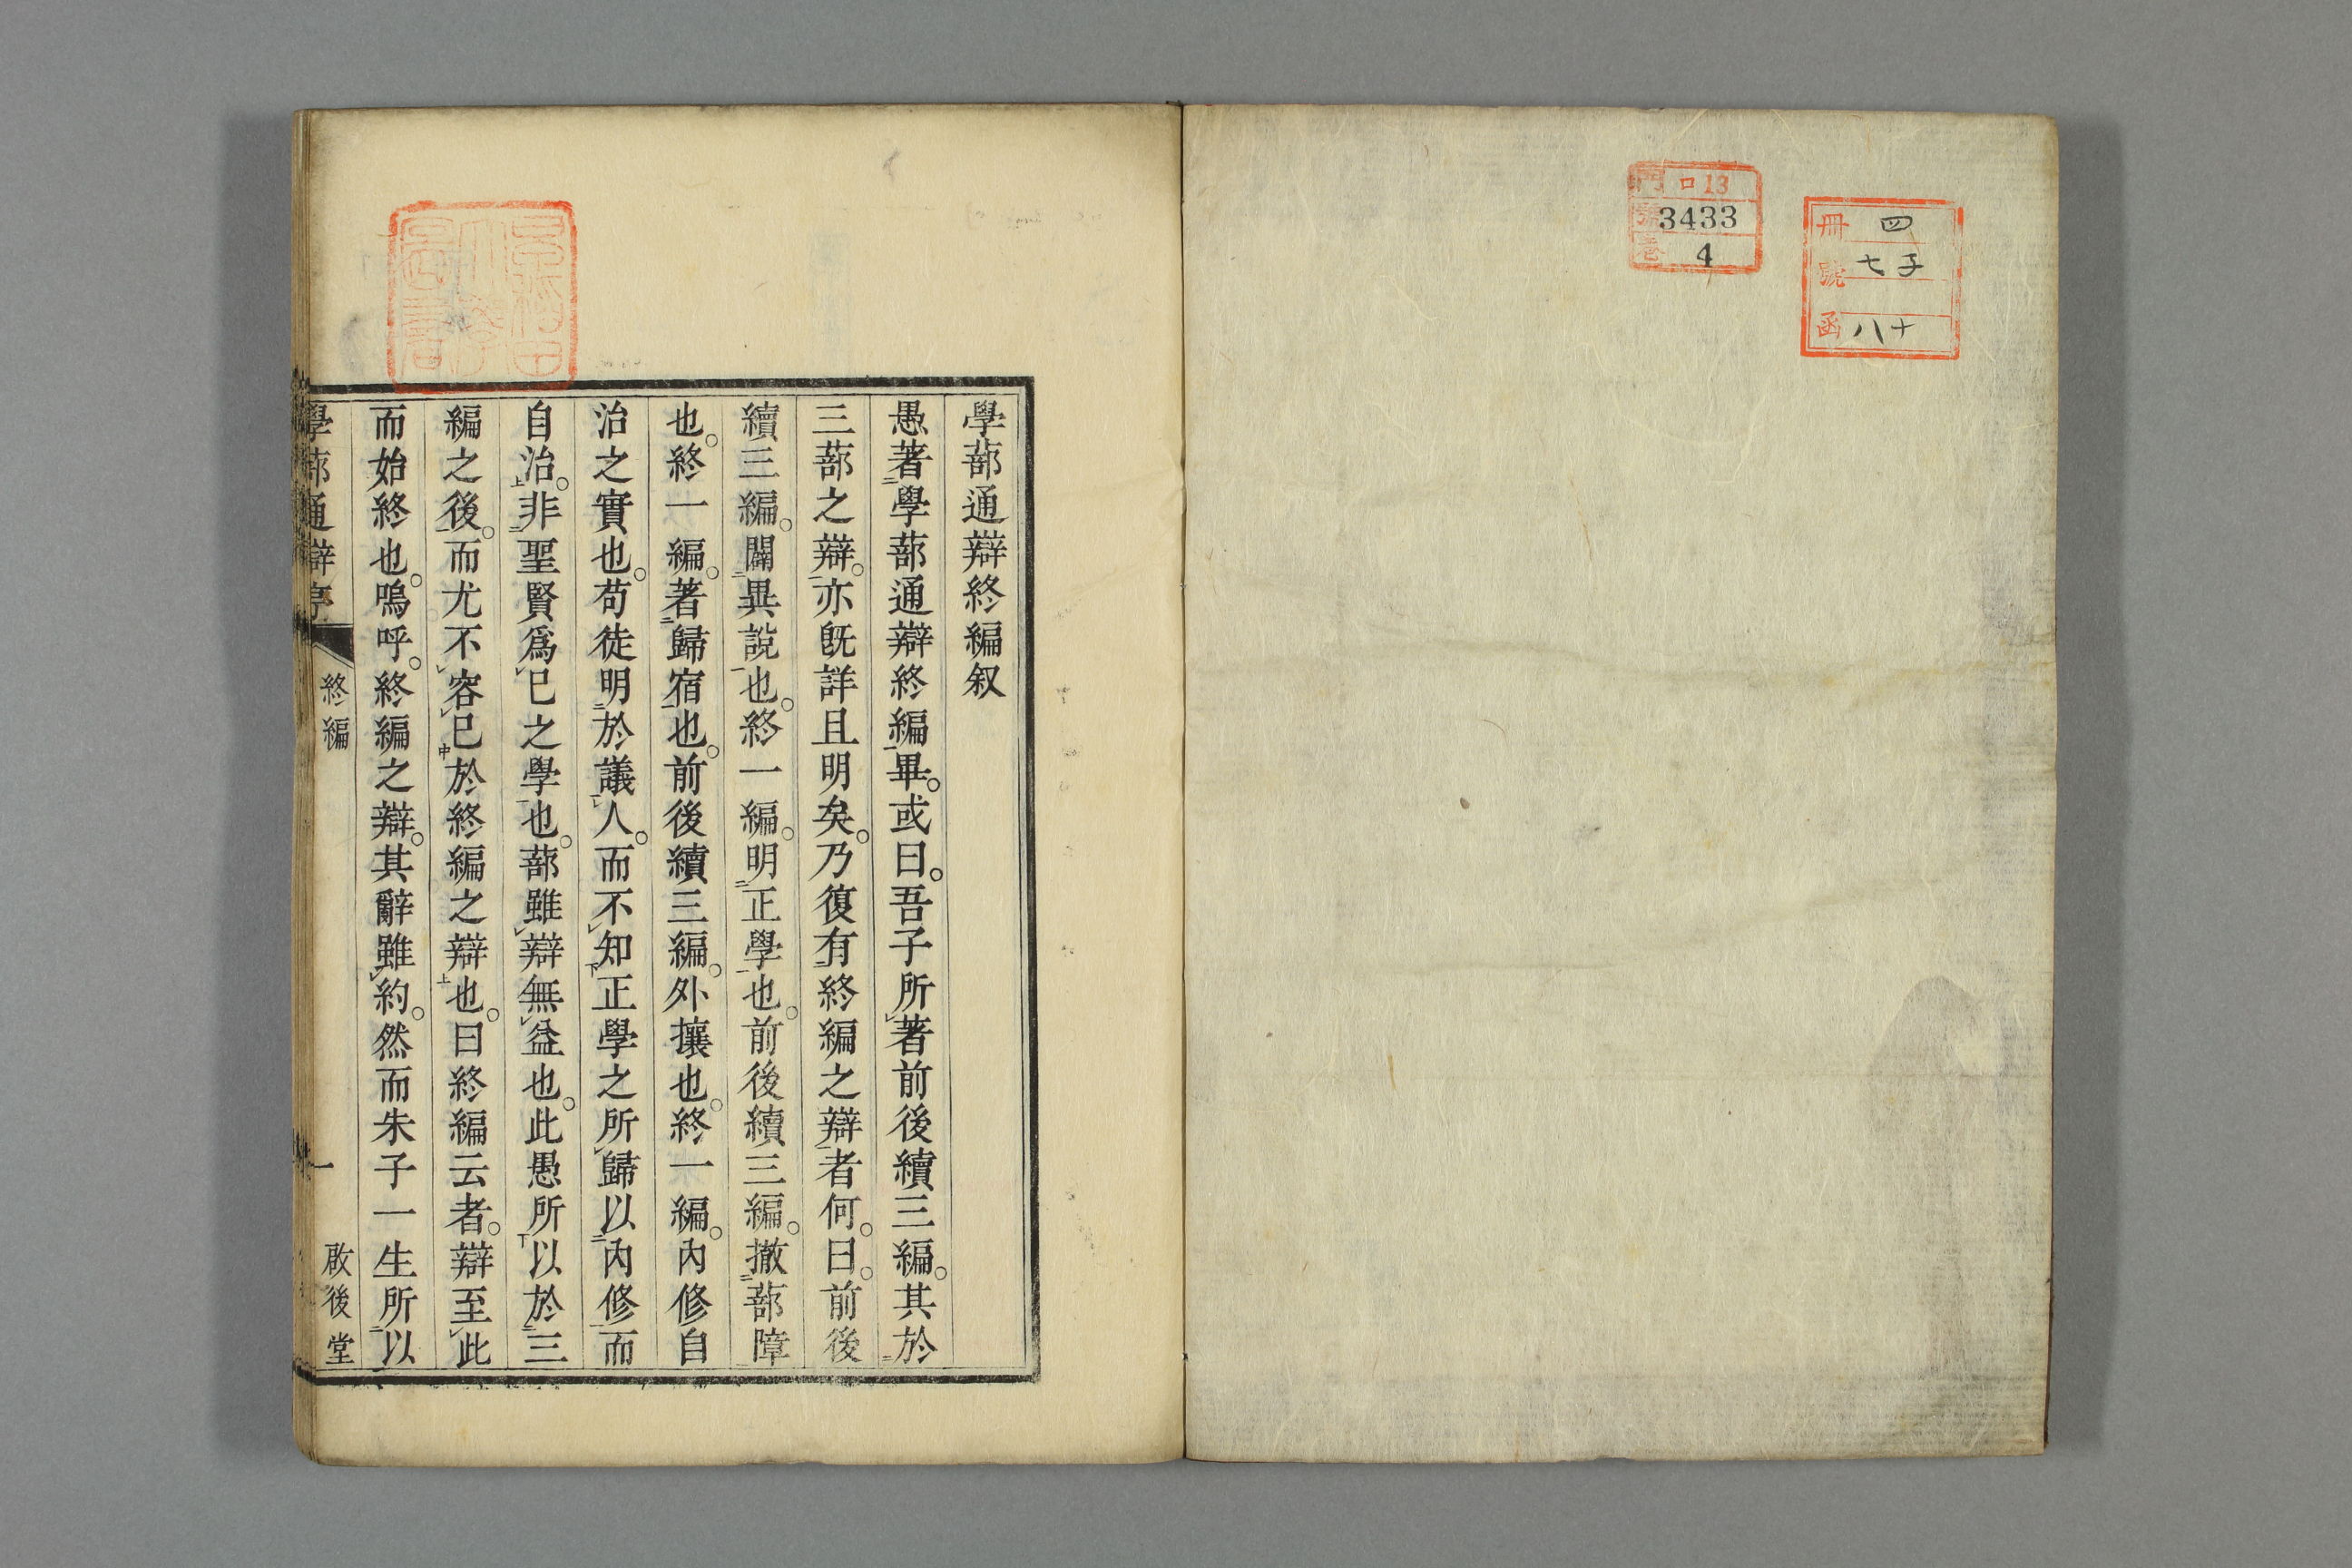 門 ロ13
號 3433
卷 4
冊 四
號 七子
函 八十
學蔀通辯終編叙
愚著學蔀通辯終編畢。或曰。吾子所著前後續三編。其於
三蔀之辯。亦旣詳且明矣。乃復有終編之辯者何。曰。前後
續三編。闢異說也。終一編。明正學也。前後續三編。撤蔀障
也。終一編。著歸宿也。前後續三編。外攘也。終一編。內修自
治之實也。苟徒明於議人。而不知正學之所歸以內修而
自治。非聖賢爲己之學也。蔀雖辯無益也。此愚所以於三
編之後。而尤不容已於終編之辯也。曰終編云者。辯至此
而始終也。嗚呼。終編之辯。其辭雖約。然而朱子一生所以
學蔀通辯序 終編 一 啟後堂